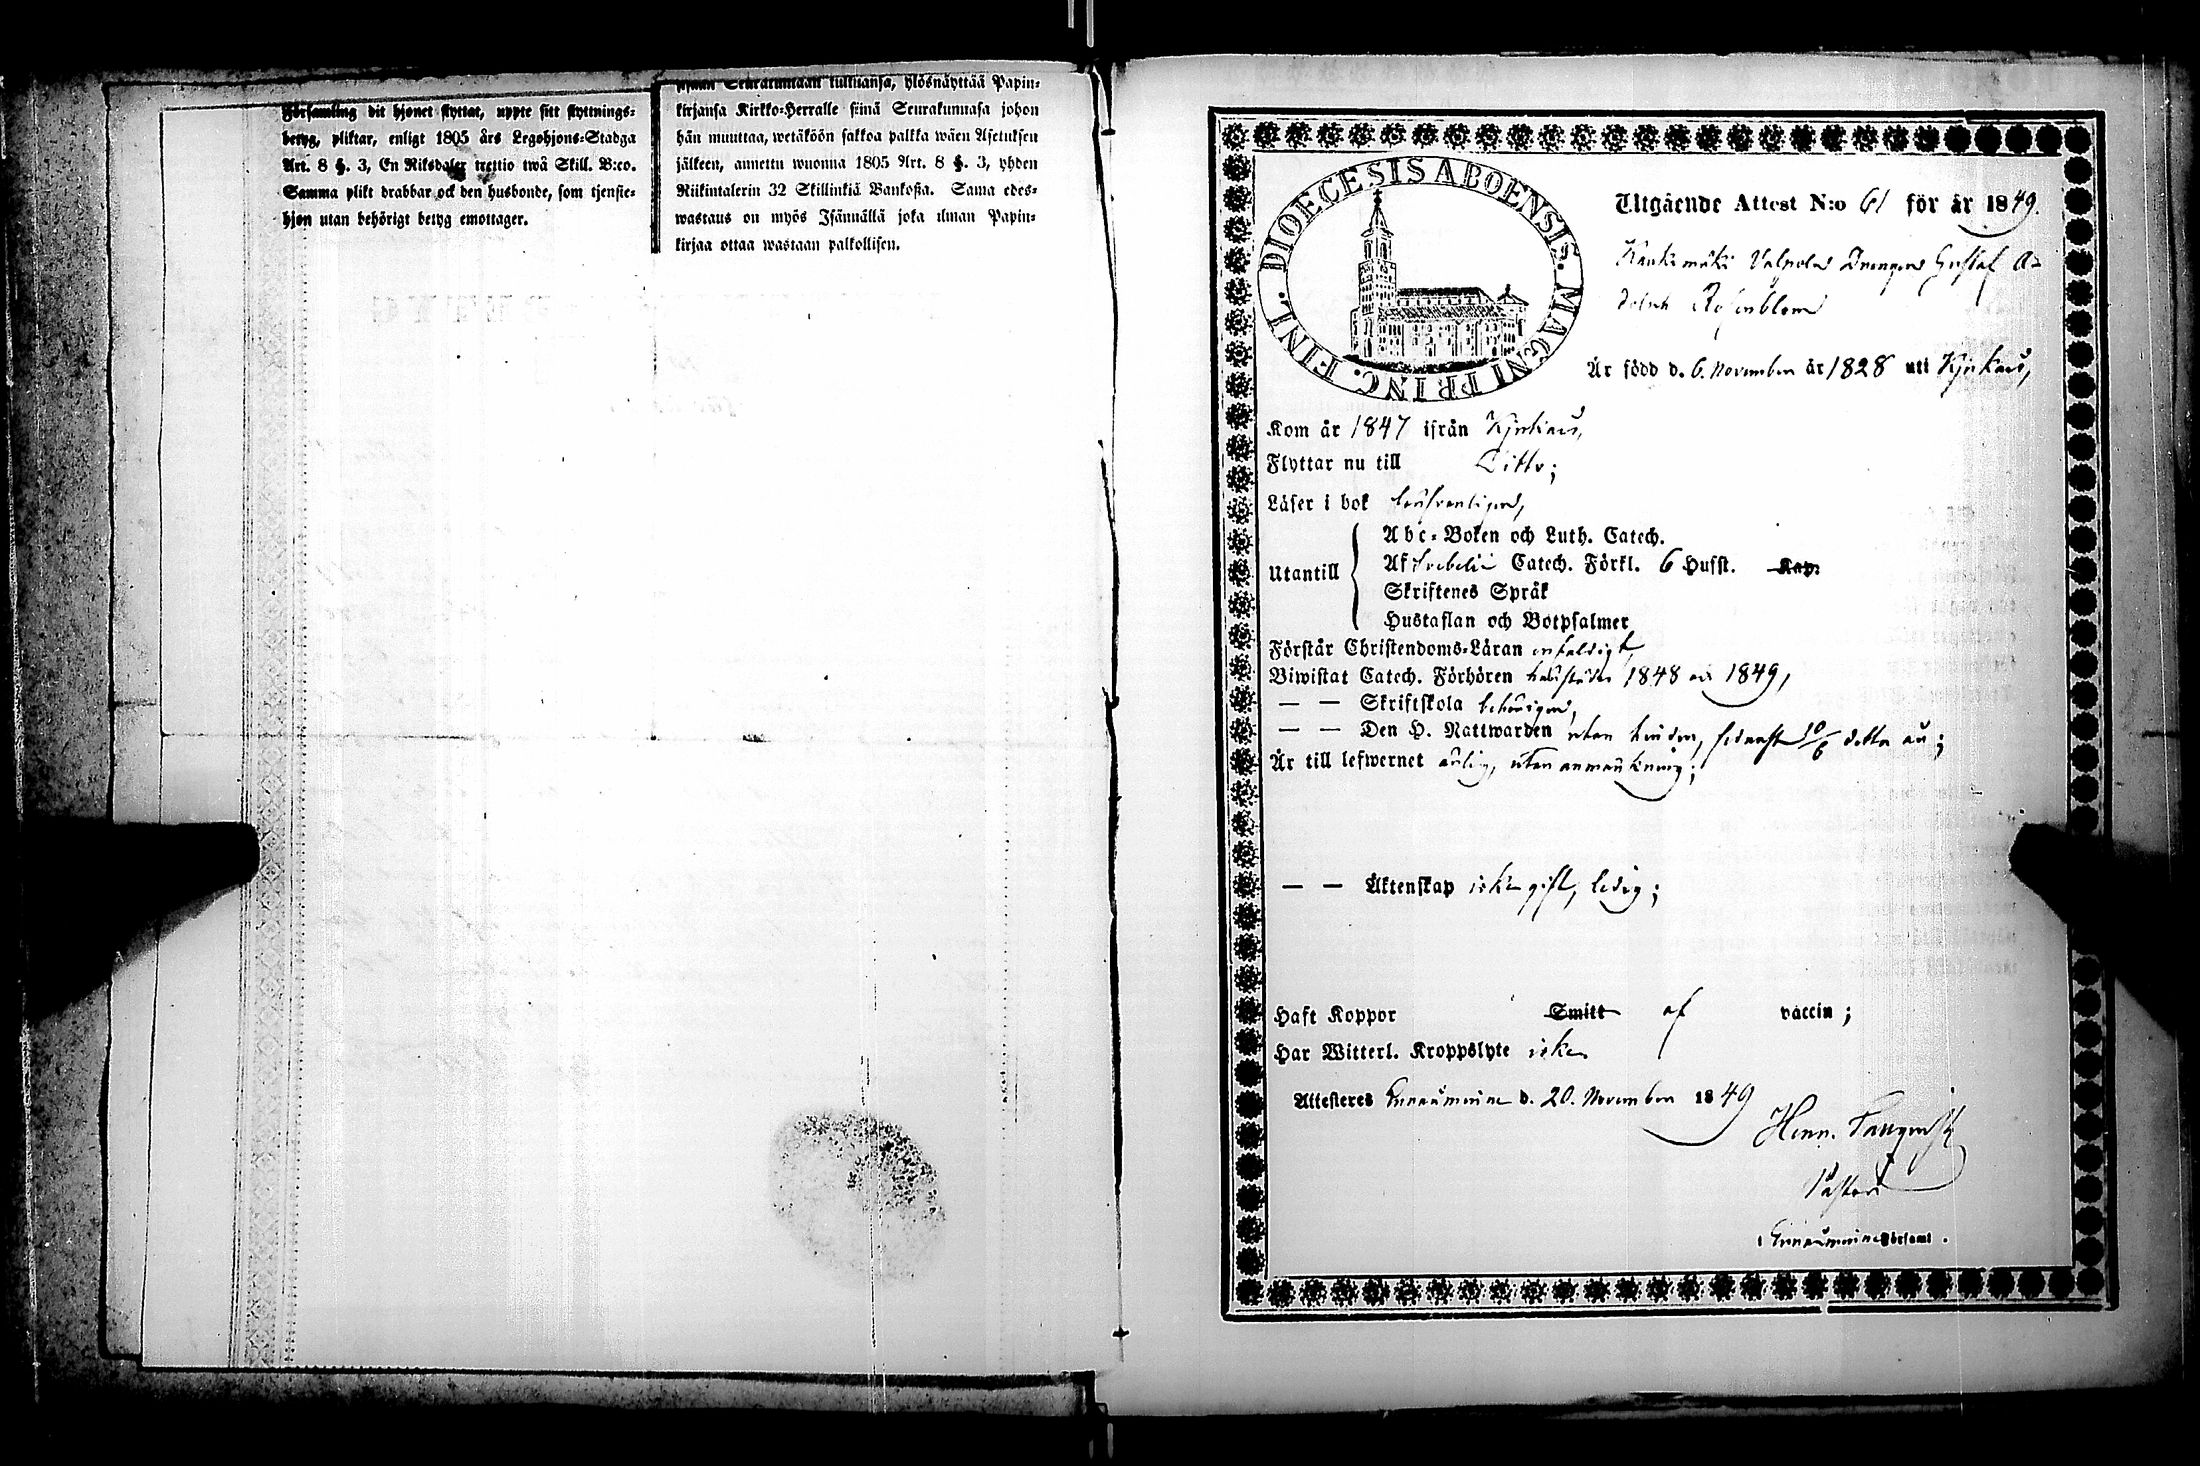 Församling dit hjonet flyttat, uppte sitt flyttnings-
betyg, pliktar, enligt 1805 års Legohjons-Stadga
Art. 8 §. 3, En Riksdaler trettio twå Skill. B:co.
Samma plikt drabbar ock den husbonde, som tjenste-
hjon utan behörigt betyg emottager.
Seurakuntaan tulluansa, ylösnäyttää Papin-
kirjansa Kirkko-Herralle siinä Seurakunnasa johon
hän muuttaa, wetäköön sakkoa palkka wäen Asetuksen
jälkeen, annettu wuonna 1805 Art. 8 §. 3, yhden
Riikintalerin 32 Skillinkiä Bankoßa. Sama edes-
wastaus on myös Isännällä joka ilman Papin-
kirjaa ottaa wastaan palkollisen.
DIOECESIS ABOENSIS. MAGNI PRINC. FINL.
Utgående Attest N:o 61 för år 1849.
Valpola Drengen Gustaf A-
dolph Rosenblom
Är född d. 6. November år 1828 uti Kjukais,
Kom år 1847 ifrån Kjukais,
Flyttar nu till Ditto;
Läser i bok
Abc-Boken och Luth. Catech.
Utantill Af Svebelii Catech. Förkl. 6 Hufst. Kap.
Skriftenes Språk
Hustaflan och Botpsalmer
Förstår Christendoms-Läran enfaldigt,
Biwistat Catech. Förhören 1848 och 1849,
— — Skriftskola behörigen,
— — Den H. Nattwarden utan hinder, sednast 10/6 detta år;
Är till lefwernet ärlig, utan anmärkning;
— — Äktenskap icke gift, ledig;
Haft Koppor Smitt af vaccin;
Har Witterl. Kroppslyte icke
Attesteras Euraåminne d. 20. November 1849
Henr.
Pastor
i Euraåminne Församl.